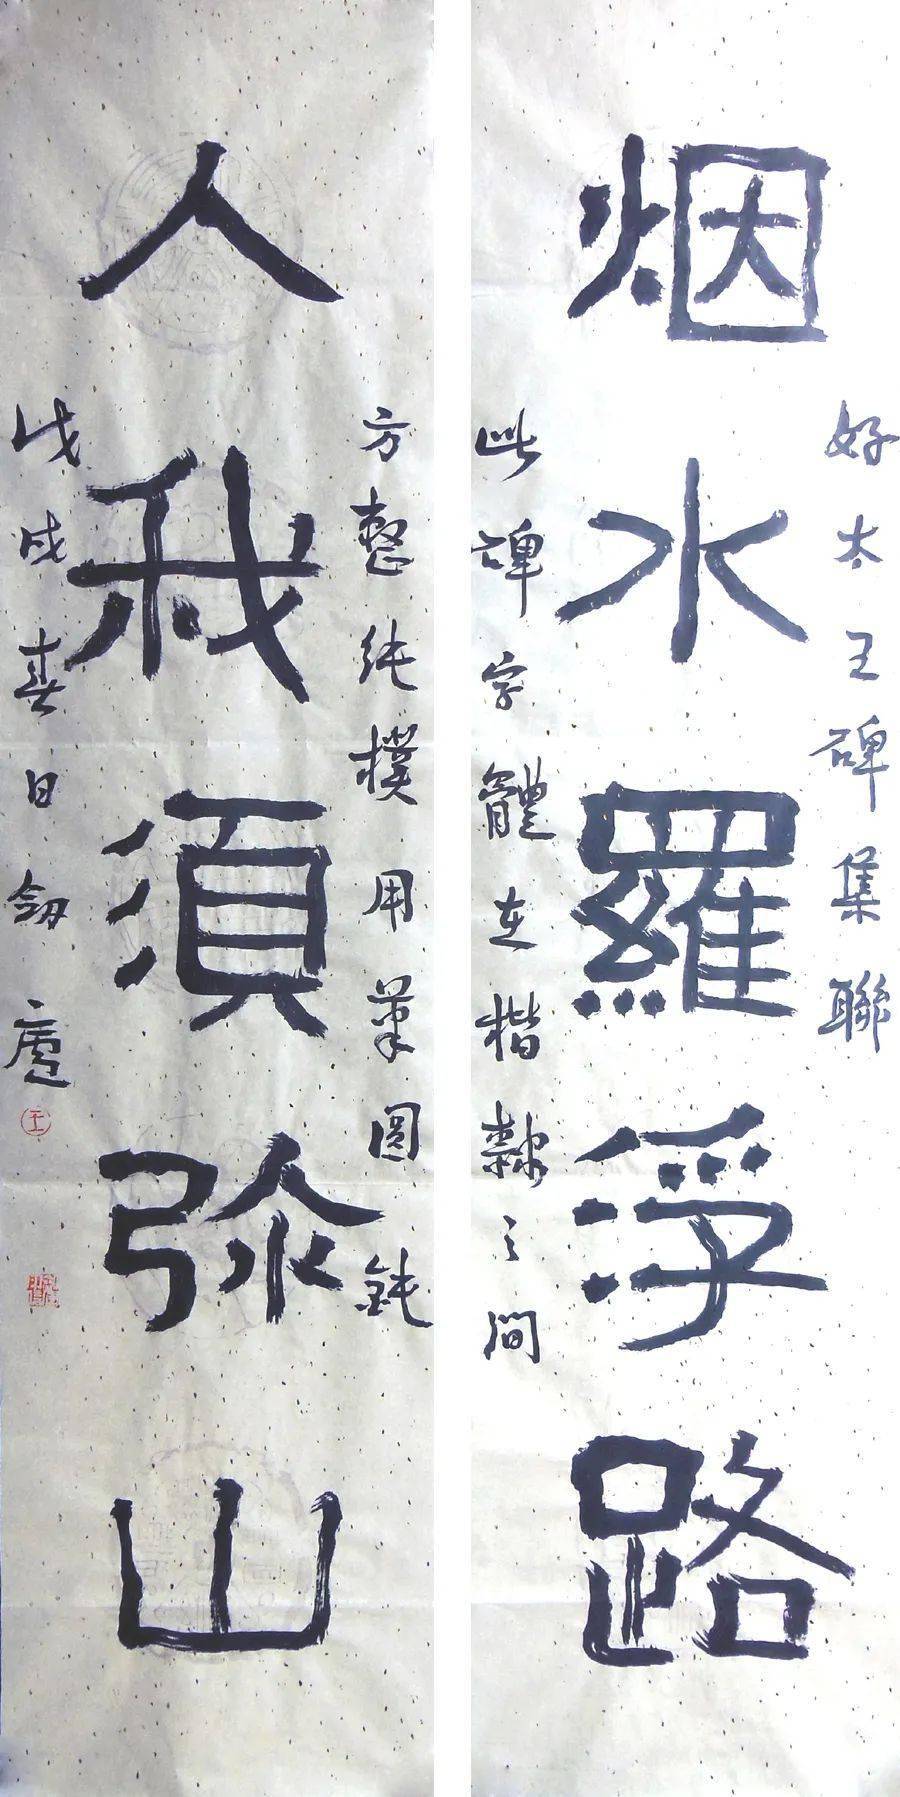 好太王碑集聯
烟水羅浮路
此碑字體在楷隸之間
方整純樸用筆圓鈍
人我須弥山
戊戌春日劔廬